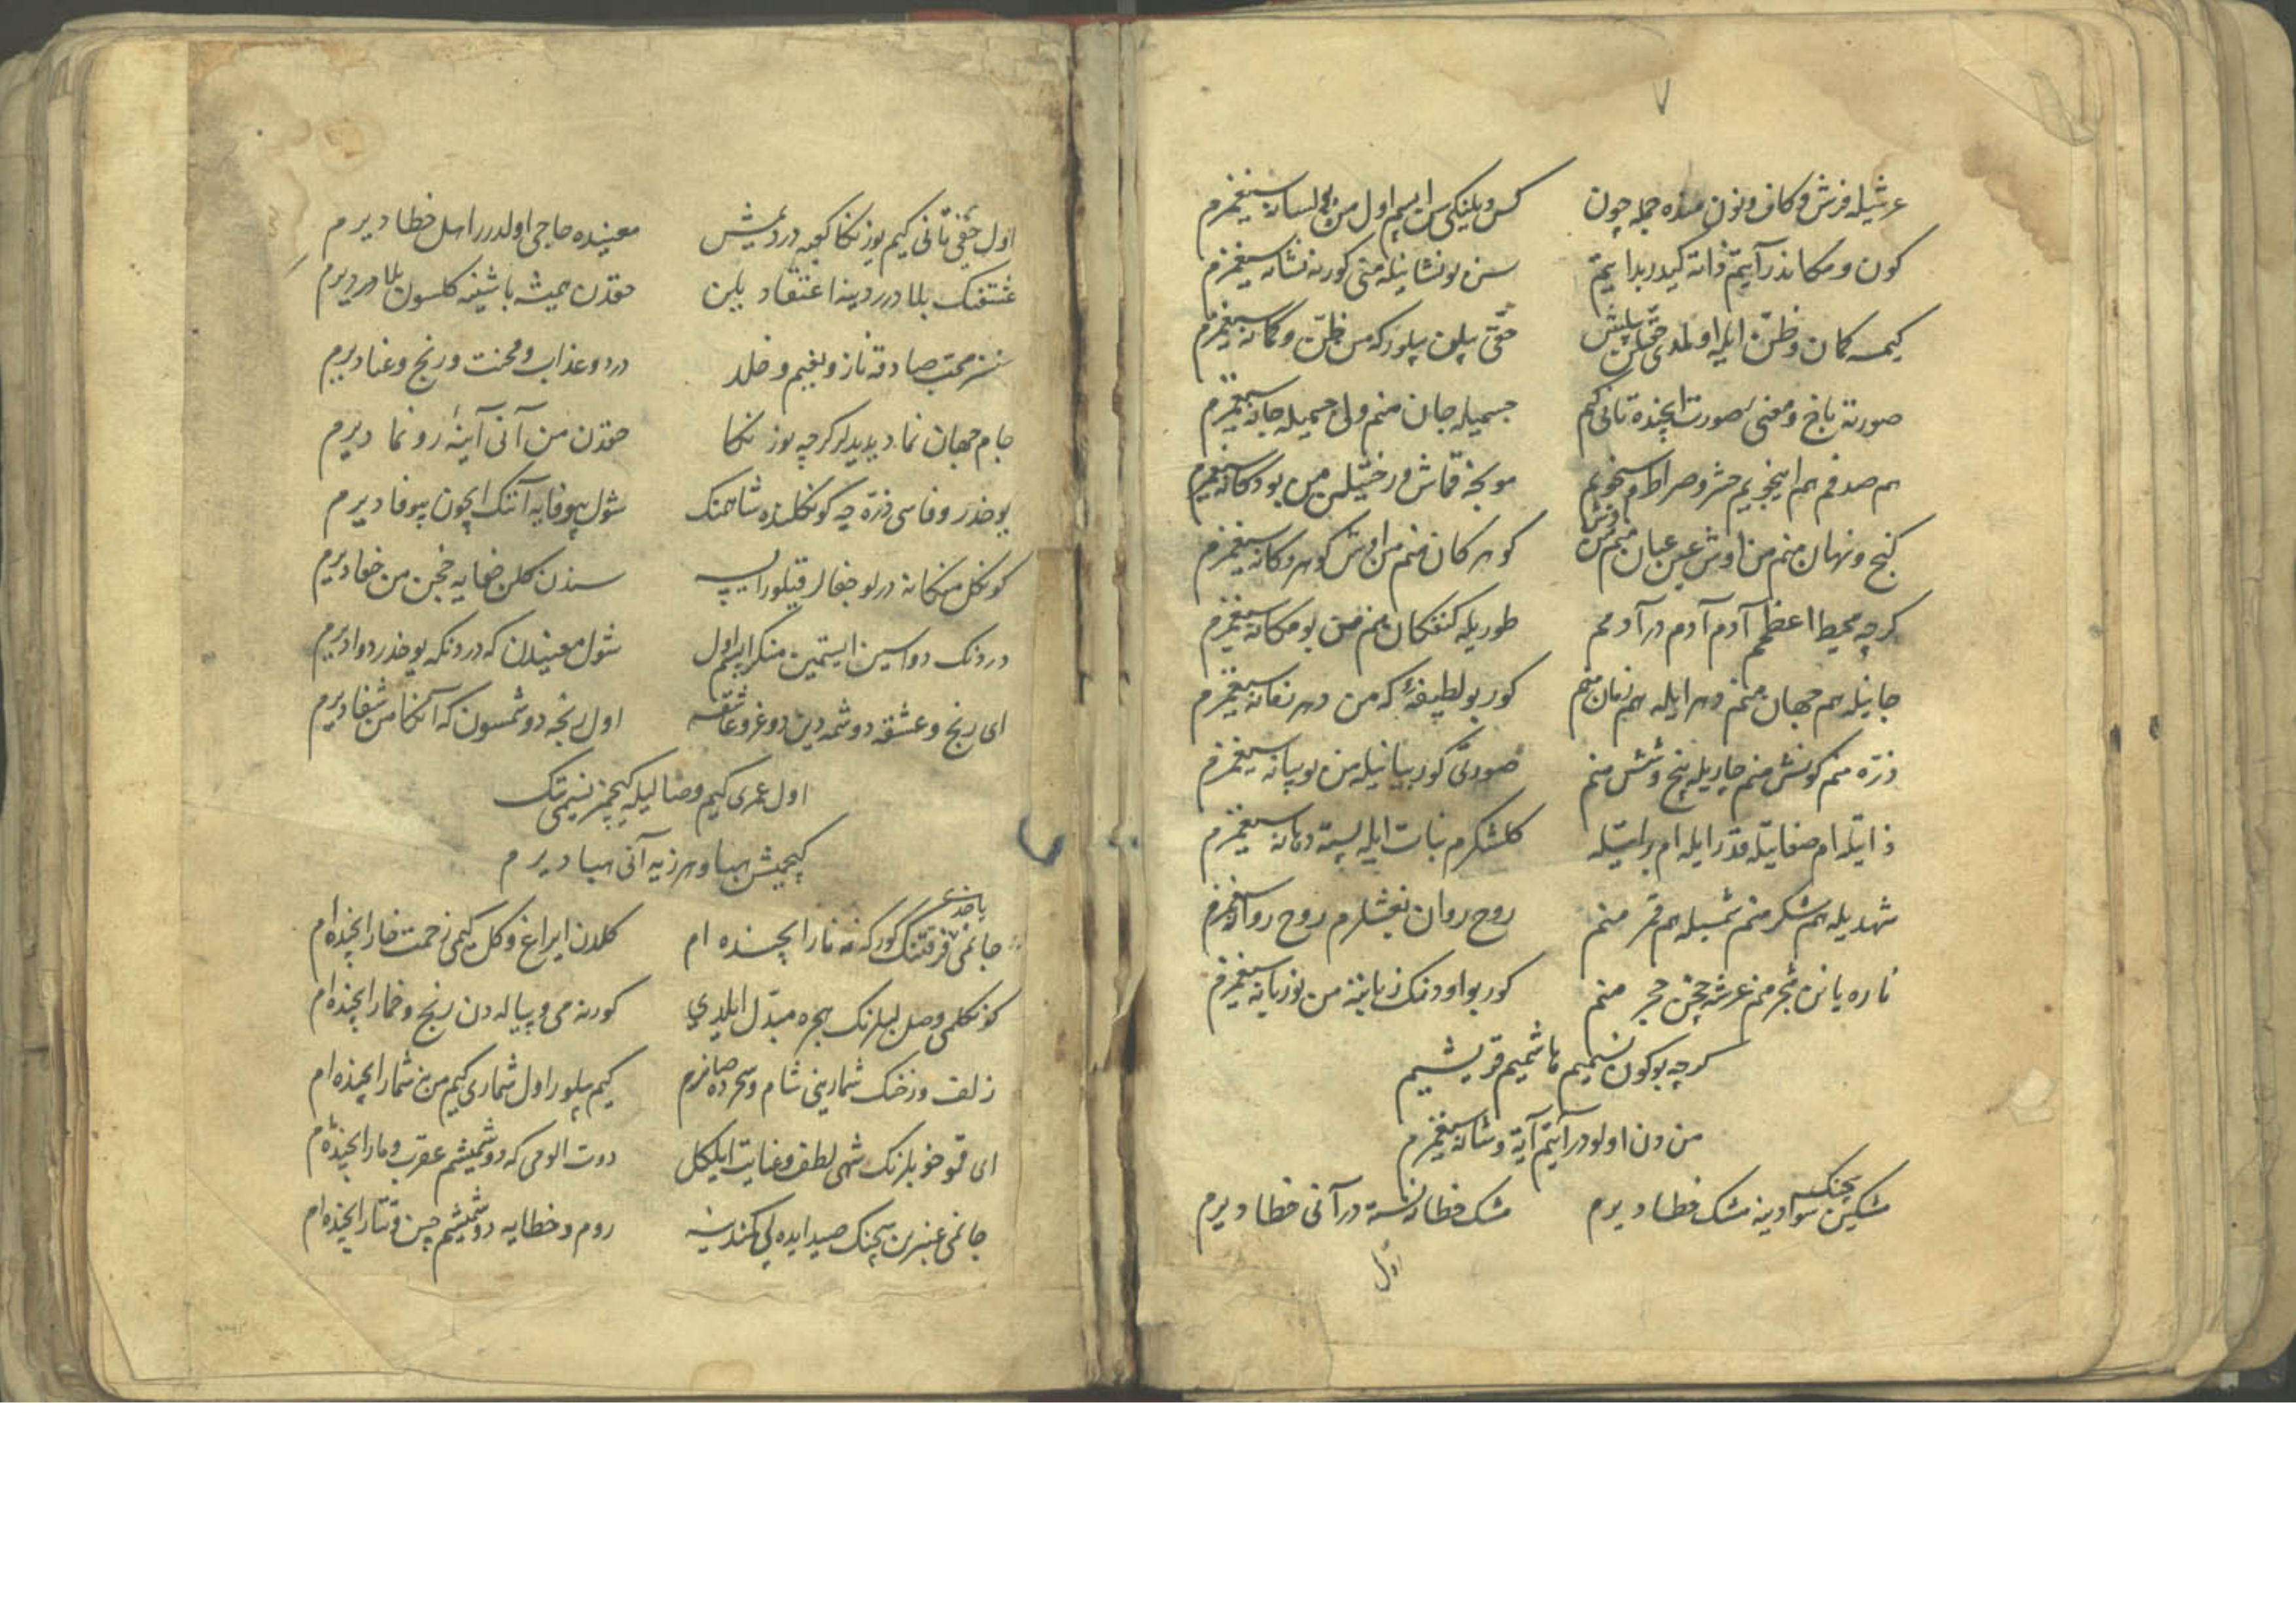 ٧
عرشیله فرش و کاف و نون منده جمله چون
کس ویلنکی سن ابسم اول من بو لسانه سیغمزم
کون و مکاندر آیتم ذاته کیدر بدایتم
سن بو نشانیله منی کورنه نشانه سیغمزم
کیمسه کمان و ظن ایله اولمدی حقیلن بیلش
حقی بیلن بیلورکه من ظن و کمانه سیغمزم
صورته باخ و معنی صورت ایچنده تانی کم
جسمیله جان منم ولی جسمیله جانه سیغمزم
هم صدفم هم اینجویم حشر و صراط
مونجه قماش و رختیلن من بو دکانه سیغمزم
کنج و نهان منم من اوش عین عیان منم من اوش
کوهر کان منم من اوش کوهر و کانه سیغمزم
کرچه محیط اعظمم آدم آدم در آدمم
طوریله کنفکان منم من بو مکانه سیغمزم
جانیله هم جهان منم دهرایله هم زمان منم
کور بو لطیفه که من دهر زمانه سیغمزم
ذره منم کونش منم چاریله پنج و شش منم
صورتی کور بیانیله من بو بیانه سیغمزم
ذاتیله ام صفاتیله قدرایله ام براتیله
کلشکرم نبات ایله پسته دهانه سیغمزم
شهدیله هم شکر منم شمسیله هم قمر منم
روح روان بغشلرم روح روانه سیغمزم
ناره یانن شجر منم عرشه چخن حجر منم
کور بو اودنک زبانینه من بو زبانه سیغمزم
کرچه بوکون نسیمیم هاشمیم قریشیم
من دن اولودر آیتم آیة و شانه سیغمزم
مشکین ساچنک سوادینه مشک خطا دیرم
مشک خطا نسته در آنی خطا دیرم
اول
اول حقی تانی کیم یوزنکا کعبه در دیمش
معنیده حاجی اولدر راسل خطا دیرم
عشقنک بلا درر دینه اعتقاد بلن
حقدن همیشه باشینه کلسون بلا دیرم
سنسز محب صادقه ناز و نعیم و خلد
درد و عذاب و محنت و رنج و عنا دیرم
جام جهان نما دیدیلر کرچه یوزنکا
حقدن من آنی آینهٔ رو نما دیرم
یوخدر وفاسی ذره چه کونکلنده شاهنک
شول بیوفایه آننک ایچون بیوفا دیرم
کونکل منکانه درلو جفالر قیلور
سندن کلن جفایه خجن من جفا دیرم
دردنک دواسین ایستمین منکر ابسم اول
شول معنیدن که دردنکه یوخدر دوا دیرم
ای رنج و عشقه دوشمه دین دوغرو عاشقه
اول رنجه دوشمسون که آنکا من شفا دیرم
اول عمری کیم وصالیله کیچمز نسیمی تک
کیچمیش هبا و هرزیه آنی هبا دیرم
جانمی فرقتنک کورکه نه نار ایچنده ام
کلدن ایراغ و کل کیمی زحمت خار ایچنده ام
کونکلمی وصل لبلرنک هجره مبدل ایلدی
کورنه می و پیاله دن رنج و خمار ایچنده ام
زلف و رخنک شمارینی شام و سحرده صانرم
کیم بیلور اول شماری کیم من نه شمار ایچنده ام
ای قمو خوبلرنک شهی لطف و عنایت ایلکل
دوت المی که دوشمیشم عقرب و مار ایچنده ام
جانمی عنبرین ساچنک صید ایده لی کمندینه
روم و خطایه دوشمیشم چین و تتار ایچنده ام